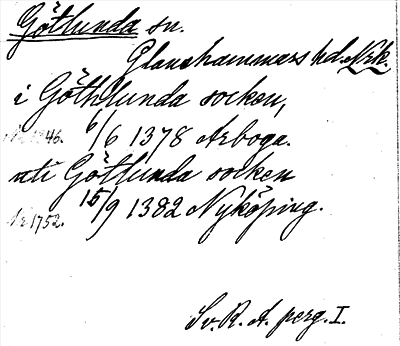 Götlunda sn.
Glanshammars hd. Nrk.
i Göthlunda socken,
Nr 1346. 6/6 1378 Arboga.
uti Götlunda socken
Nr 1752. 15/9 1382 Nyköping.
Sv. R. A. perg. I.